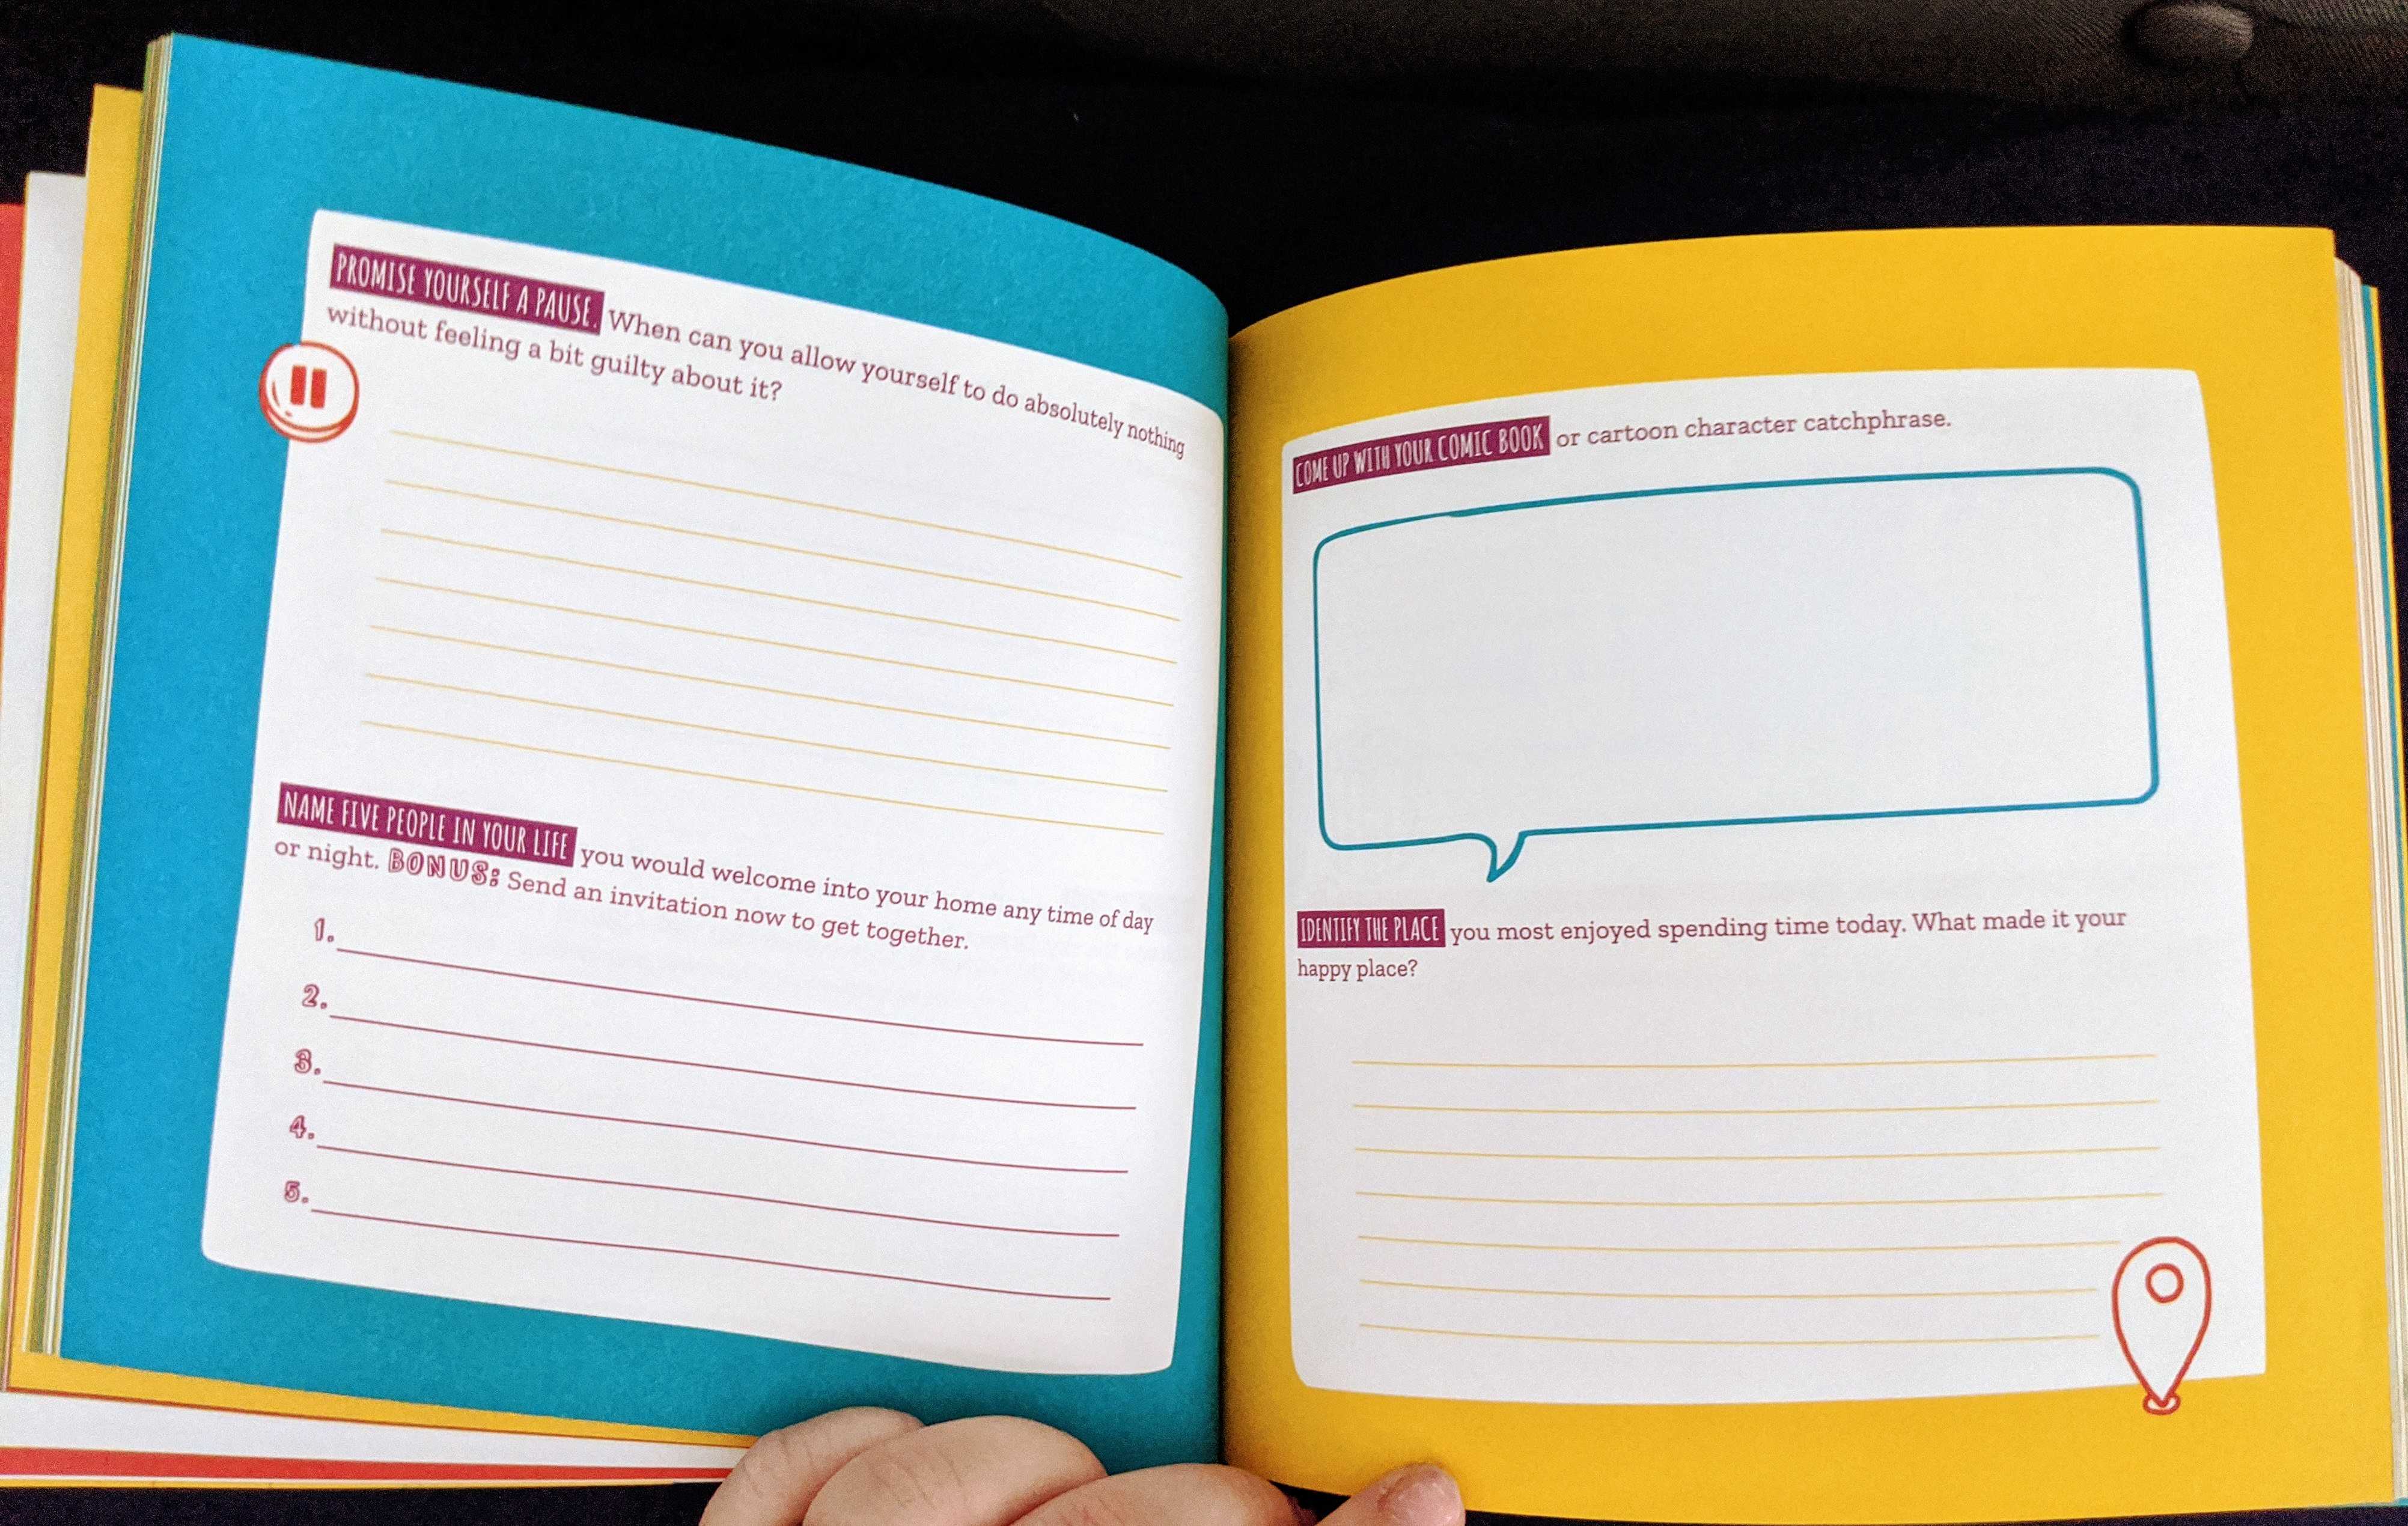 PROMISE YOURSELF A PAUSE. When can you allow yourself to do absolutely nothing
without feeling a bit guilty about it?
NAME FIVE PEOPLE IN YOUR LIFE you would welcome into your home any time of day
or night. BONUS: Send an invitation now to get together.
1.
2.
3.
4.
5.
COME UP WITH YOUR COMIC BOOK or cartoon character catchphrase.
IDENTIFY THE PLACE you most enjoyed spending time today. What made it your
happy place?